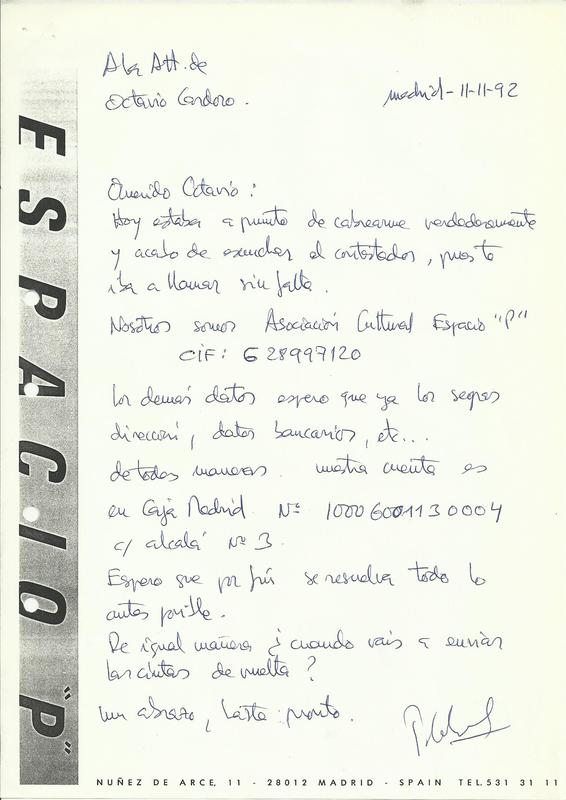 A la Att. de
Octavio Cardoso.
madrid-11-11-92
Querido Octavio:
Hoy estaba a punto de cabrearme verdaderamente
y acabo de escuchar el contestador, pues te
iba a llamar sin falta.
Nosotros somos Asociación Cultural Espacio "P"
CIF: G 28997120
los demás datos espero que ya los sepas
dirección, datos bancarios, etc...
de todas maneras nuestra cuenta es
en Caja Madrid Nº 10006001130004
c/ alcalá nº 3
Espero que por fin se resuelva todo lo
antes posible.
De igual manera ¿cuando vais a enviar
las cintas de vuelta?
un abrazo, hasta pronto.
ESPACIO "P"
NUÑEZ DE ARCE, 11 - 28012 MADRID - SPAIN TEL.531 31 11